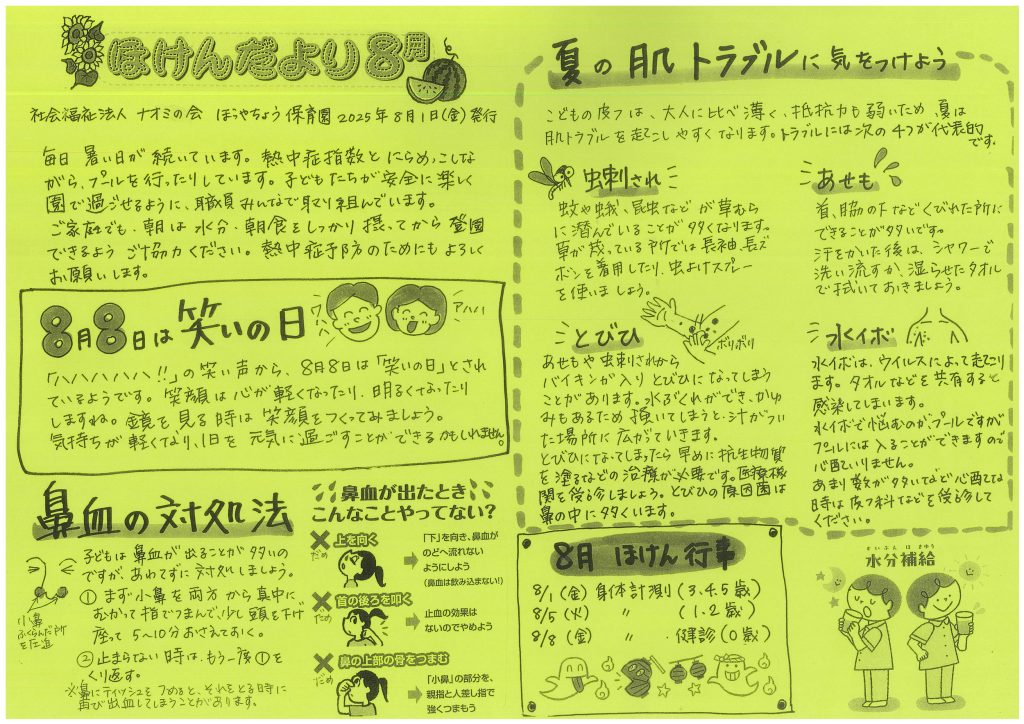 ほけんだより8月
社会福祉法人 ナオミの会 ほうやちょう保育園 2025年8月1日(金)発行
毎日 暑い日が続いています。熱中症指数とにらめっこしな
がら、プールを行ったりしています。子どもたちが安全に楽しく
園で過ごせるように、職員みんなで取り組んでいます。
ご家庭でも、朝は水分・朝食をしっかり摂ってから登園
できるようご協力ください。熱中症予防のためにもよろしく
お願いします。
8月8日は笑いの日
ワハハ
アハハ
「ハハハハハ!!」の笑い声から、8月8日は「笑いの日」とされ
ているようです。笑顔は心が軽くなったり、明るくなったり
しますね。鏡を見る時は笑顔をつくってみましょう。
気持ちが軽くなり、1日を元気に過ごすことができるかもしれません。
鼻血の対処法
子どもは鼻血が出ることが多いの
ですが、あわてずに対処しましょう。
① まず小鼻を両方から真中に
むかって指でつまんで、少し頭を下げ
座って5~10分おさえておく。
② 止まらない時は、もう一度①を
くり返す。
※鼻にティッシュをつめると、それをとる時に
再び出血してしまうことがあります。
小鼻
ふくらんだ所
を圧迫
鼻血が出たとき
こんなことやってない?
上を向く
だめ
「下」を向き、鼻血が
のどへ流れない
ようにしよう
(鼻血は飲み込まない!)
首の後ろを叩く
だめ
止血の効果は
ないのでやめよう
鼻の上部の骨をつまむ
だめ
「小鼻」の部分を、
親指と人差し指で
強くつまもう
夏の肌トラブルに気をつけよう
こどもの皮フは、大人に比べ薄く、抵抗力も弱いため、夏は
肌トラブルを起こしやすくなります。トラブルには次の4つが代表的
です。
虫刺され
蚊や蛾、昆虫などが草むら
に潜んでいることが多くなります。
草が茂っている所では長袖、長ズ
ボンを着用したり、虫よけスプレー
を使いましょう。
あせも
首、脇の下などくびれた所に
できることが多いです。
汗をかいた後は、シャワーで
洗い流すか、湿らせたタオル
で拭いておきましょう。
とびひ
ボリボリ
あせもや虫刺されから
バイキンが入りとびひになってしまう
ことがあります。水ぶくれができ、かゆ
みもあるため掻いてしまうと、汁がつい
た場所に広がっていきます。
とびひになってしまったら早めに抗生物質
を塗るなどの治療が必要です。医療機
関を受診しましょう。とびひの原因菌は
鼻の中に多くいます。
水イボ
水イボは、ウイルスによって起こり
ます。タオルなどを共有すると
感染してしまいます。
水イボで悩むのが、プールですが
プールには入ることができますので
心配いりません。
あまり数が多いなど心配な
時は皮フ科などを受診して
ください。
8月 ほけん行事
8/1(金) 身体計測(3.4.5歳)
8/5(火) 〃 (1.2歳)
8/8(金) 〃 ・健診(0歳)
すいぶんほきゅう
水分補給